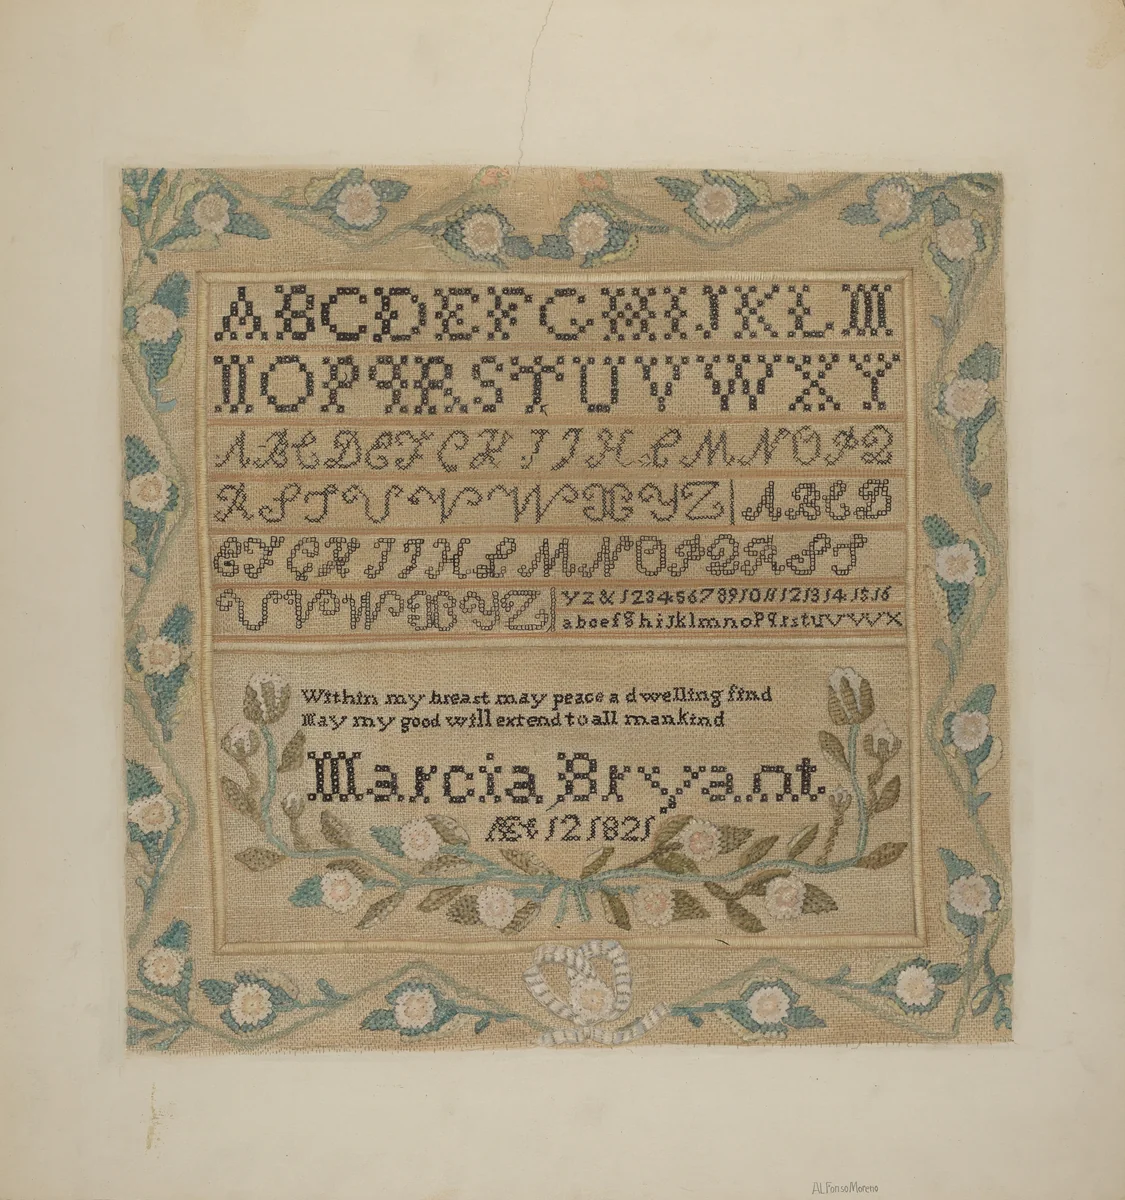 ABCDEFGHIJKLM
NOPQRSTUVWXY
ABCDEFGHIJKLMNOPQ
RSTUVWXYZ ABCD
EFGHIJKLMNOPQRST
UVWXYZ
yz&12345678910111213141516
abcefghijklmnopqrstuvwx
Within my breast may peace a dwelling find
May my good will extend to all mankind
Marcia Bryant
Æt 12 1821
ALFonso Moreno